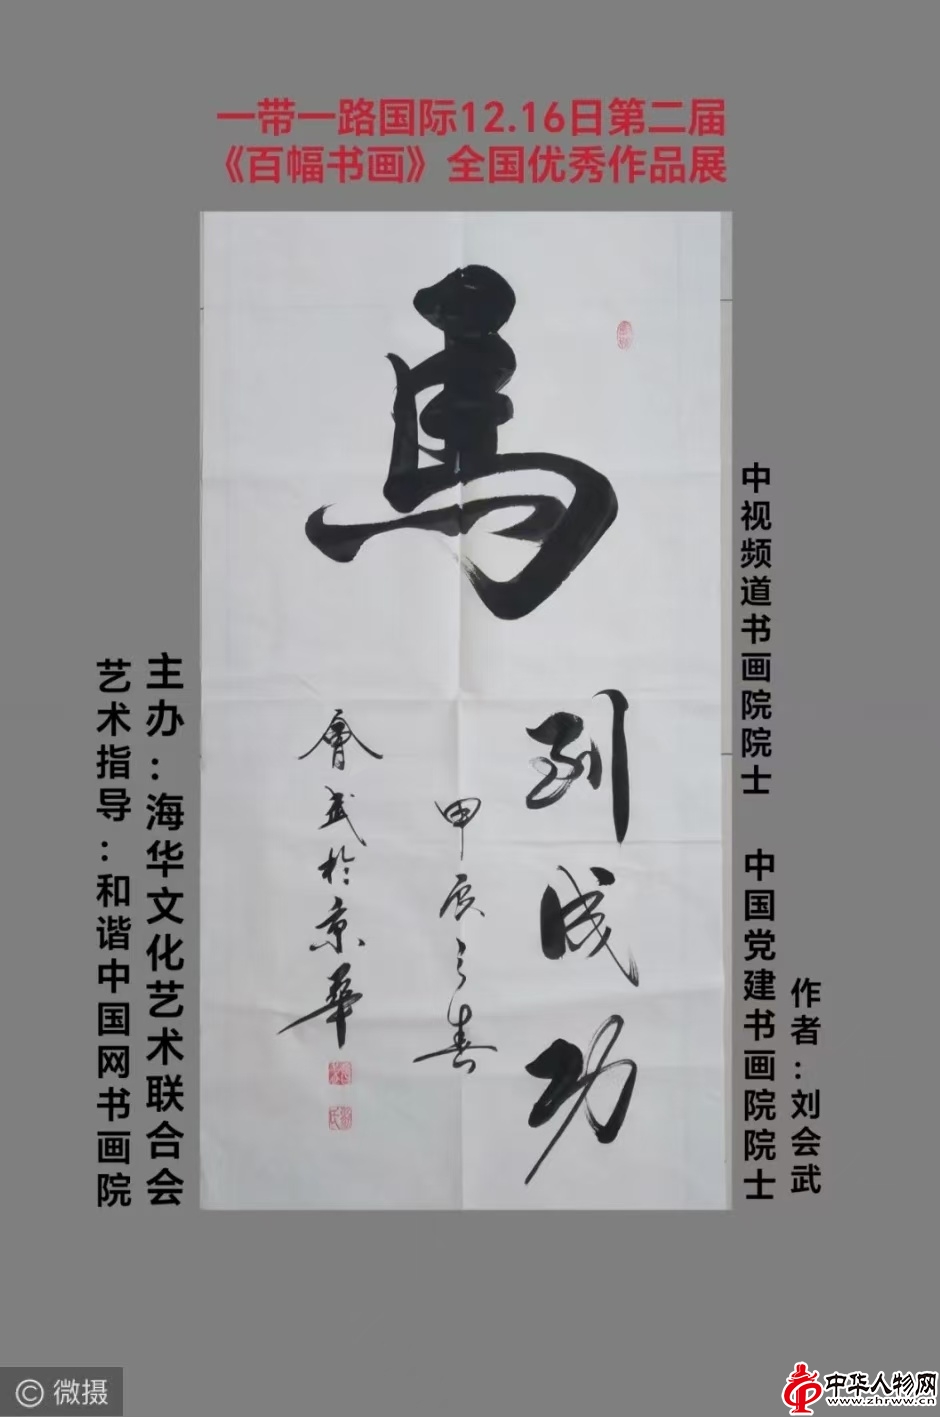 一带一路国际12.16日第二届
《百幅书画》全国优秀作品展
馬
到成功
甲辰之春
會武於京華
中视频道书画院院士 中国党建书画院院士
作者:刘会武
主办:海华文化艺术联合会
艺术指导:和谐中国网书画院
© 微摄
中华人物网
www.zhrww.cn